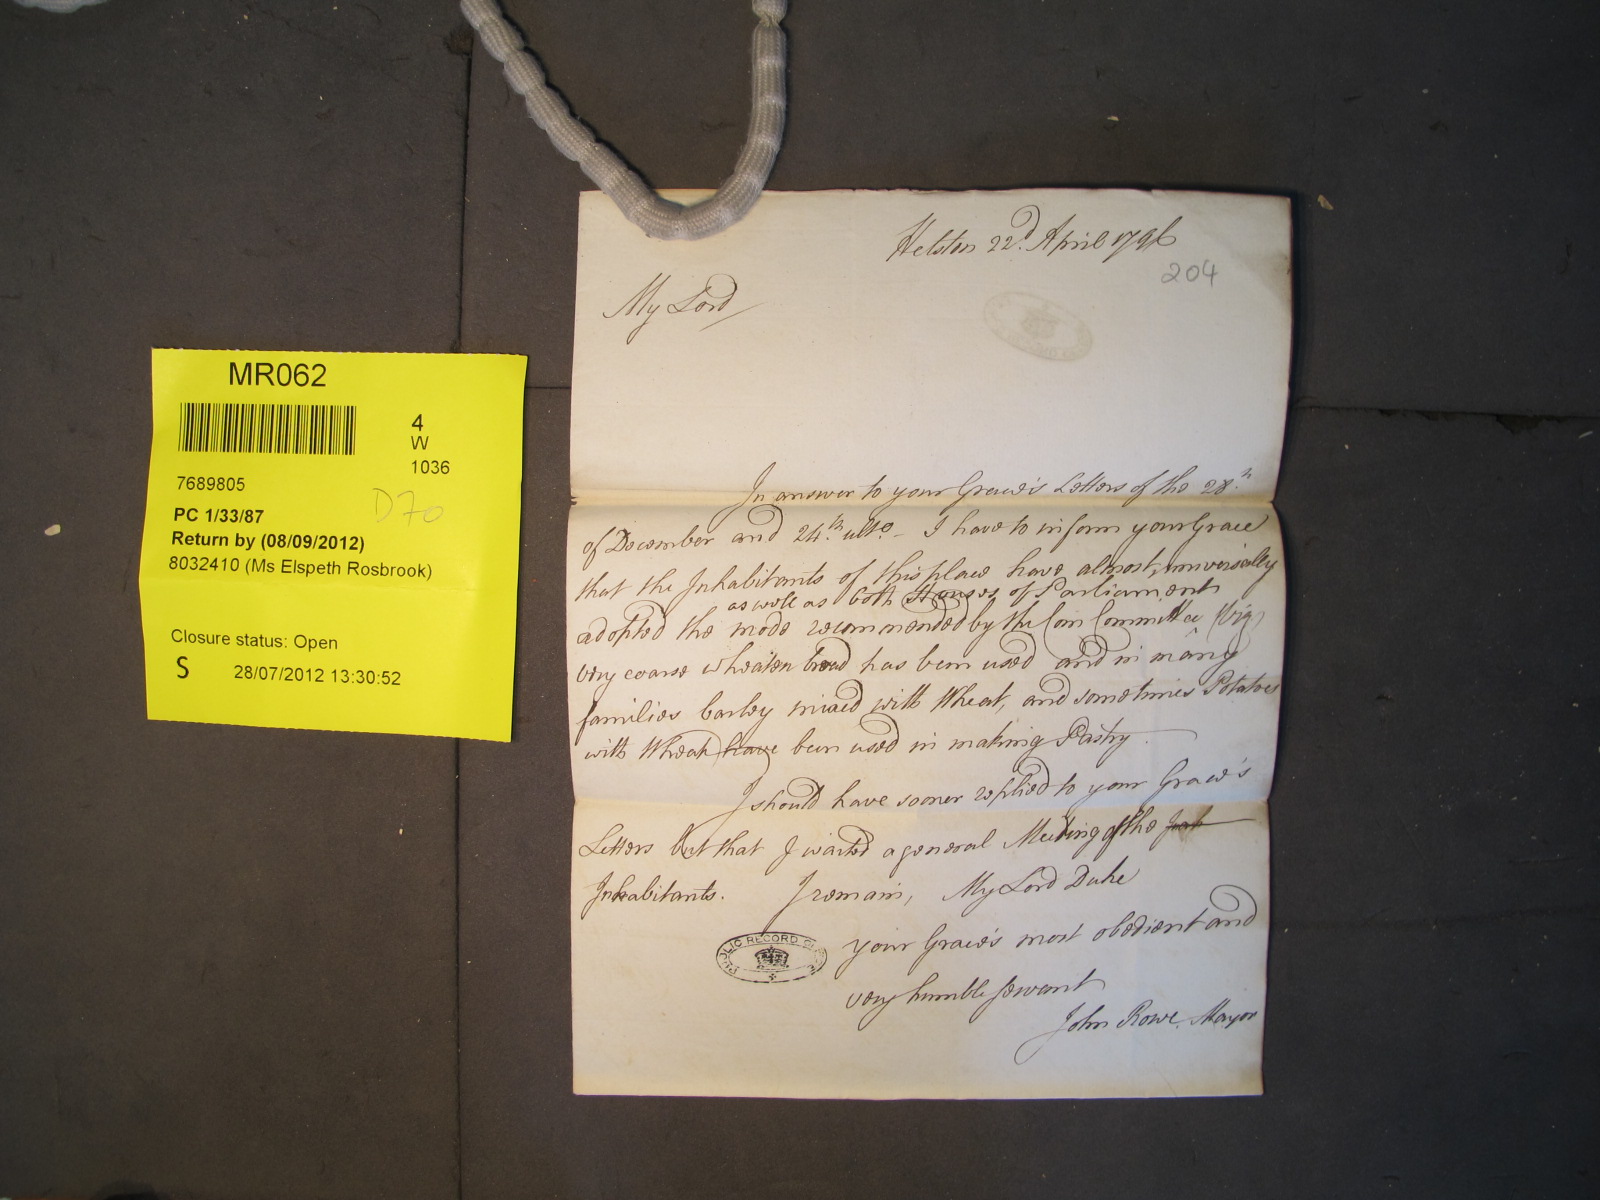 MR062
4
W
1036
7689805
D70
PC 1/33/87
Return by (08/09/2012)
8032410 (Ms Elspeth Rosbrook)
Closure status: Open
S 28/07/2012 13:30:52
Helston 22d. April 1796
204
My Lord
In answer to your Grace's Letters of the 28.th
of December and 24.th ulto. - I have to inform your Grace
that the Inhabitants of this place have almost, universally
as well as both Houses, of Parliament
adopted the mode recommended by the Corn Committee (viz)
very coarse wheaten bread has been used and in many
families barley mixed with Wheat, and sometimes Potatoes
with Wheat have been used in making Pastry.
I should have sooner replied to your Grace's
Letters but that I waited a general Meeting of the
Inhabitants. I remain, My Lord Duke
your Grace's most obedient and
very humble servant
John Rowe, Mayor
PUBLIC RECORD OFFICE